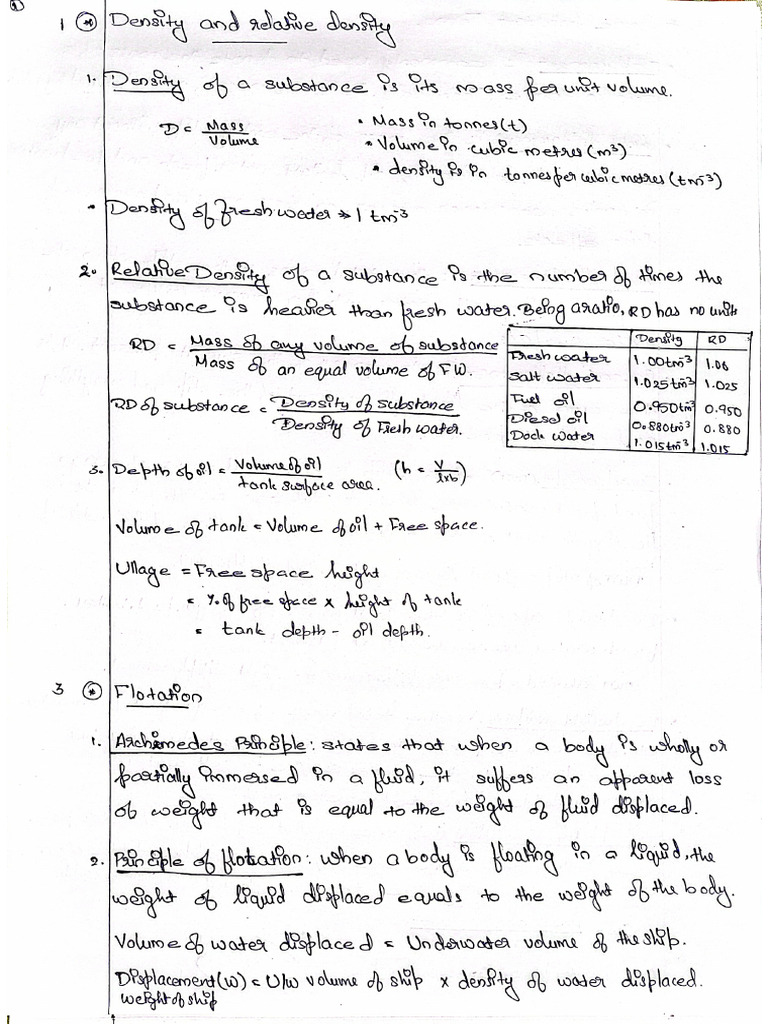 1
1 * Density and relative density
1. Density of a substance is its mass per unit volume.
D = Mass / Volume
• Mass in tonnes (t)
• Volume in cubic metres (m³)
• density is in tonnes per cubic metres (tm⁻³)
• Density of fresh water → 1 tm⁻³
2. Relative Density of a substance is the number of times the
substance is heavier than fresh water. Being a ratio, RD has no units
RD = Mass of any volume of substance / Mass of an equal volume of FW.
RD of substance = Density of substance / Density of Fresh water.
Density RD
Fresh water 1.00tm⁻³ 1.00
Salt water 1.025tm⁻³ 1.025
Fuel oil 0.950tm⁻³ 0.950
Diesel oil 0.880tm⁻³ 0.880
Dock water 1.015tm⁻³ 1.015
3. Depth of oil = Volume of oil / tank surface area. (h = V / l×b)
Volume of tank = Volume of oil + Free space.
Ullage = Free space height
= % of free space × height of tank
= tank depth - oil depth.
3 * Flotation
1. Archimedes Principle: states that when a body is wholly or
partially immersed in a fluid, it suffers an apparent loss
of weight that is equal to the weight of fluid displaced.
2. Principle of flotation: when a body is floating in a liquid, the
weight of liquid displaced equals to the weight of the body.
Volume of water displaced = Underwater volume of the ship.
Displacement (W) = U/w volume of ship × density of water displaced.
weight of ship